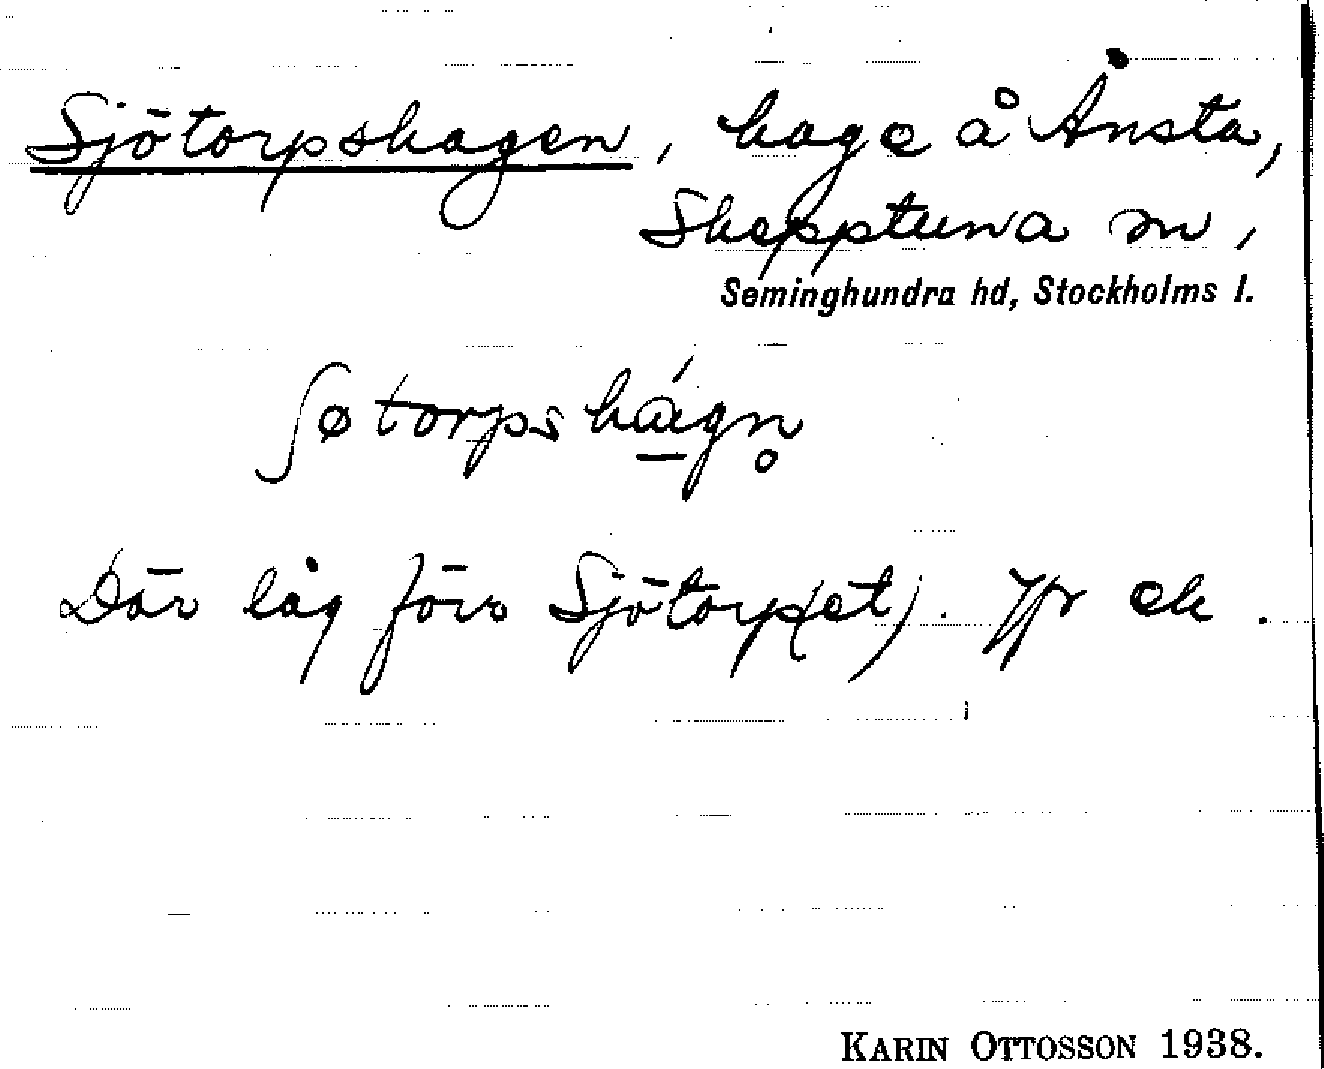 Sjötorpshagen, hage å Ånsta,
Skepptuna sn,
Seminghundra hd, Stockholms l.
ʃøtorpshágn̥
Där låg förr Sjötorp(et). Jfr ek.
KARIN OTTOSSON 1938.